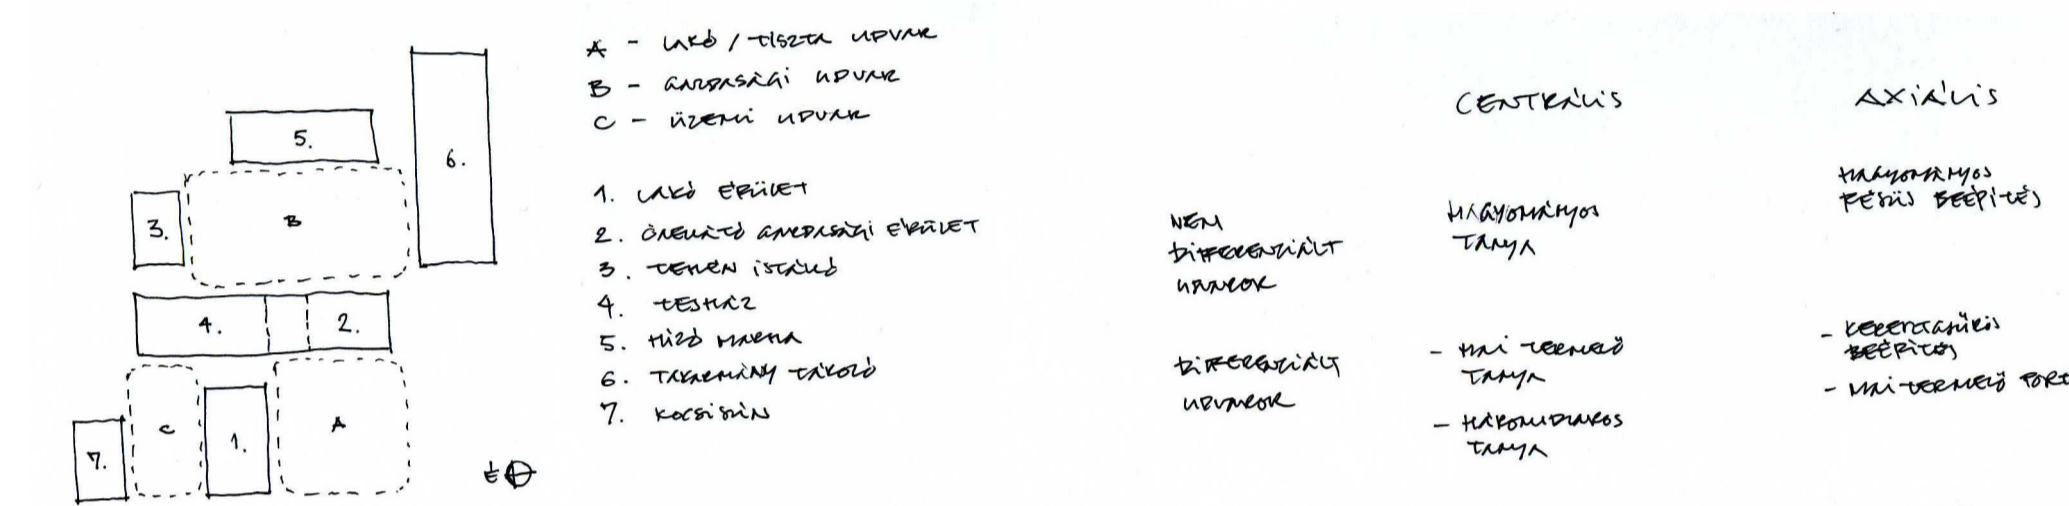 A - LAKÓ / TISZTA UDVAR
B - GAZDASÁGI UDVAR
C - ÜZEMI UDVAR
1. LAKÓ ÉPÜLET
2. ÖNELLÁTÓ GAZDASÁGI ÉPÜLET
3. TEHÉN ISTÁLLÓ
4. TEJHÁZ
5. HÍZÓ MARHA
6. TAKARMÁNY TÁROLÓ
7. KOCSISZÍN
5.
6.
3.
B
4.
2.
C
1.
A
7.
É
CENTRÁLIS
AXIÁLIS
NEM
DIFFERENZIÁLT
UDVAROK
HAGYOMÁNYOS
TANYA
HAGYOMÁNYOS
FÉSŰS BEÉPÍTÉS
DIFFERENZIÁLT
UDVAROK
- MAI TERMELŐ
TANYA
- HÁROMUDVAROS
TANYA
- KERESZTCSŰRÖS
BEÉPÍTÉS
- MAI TERMELŐ PORT